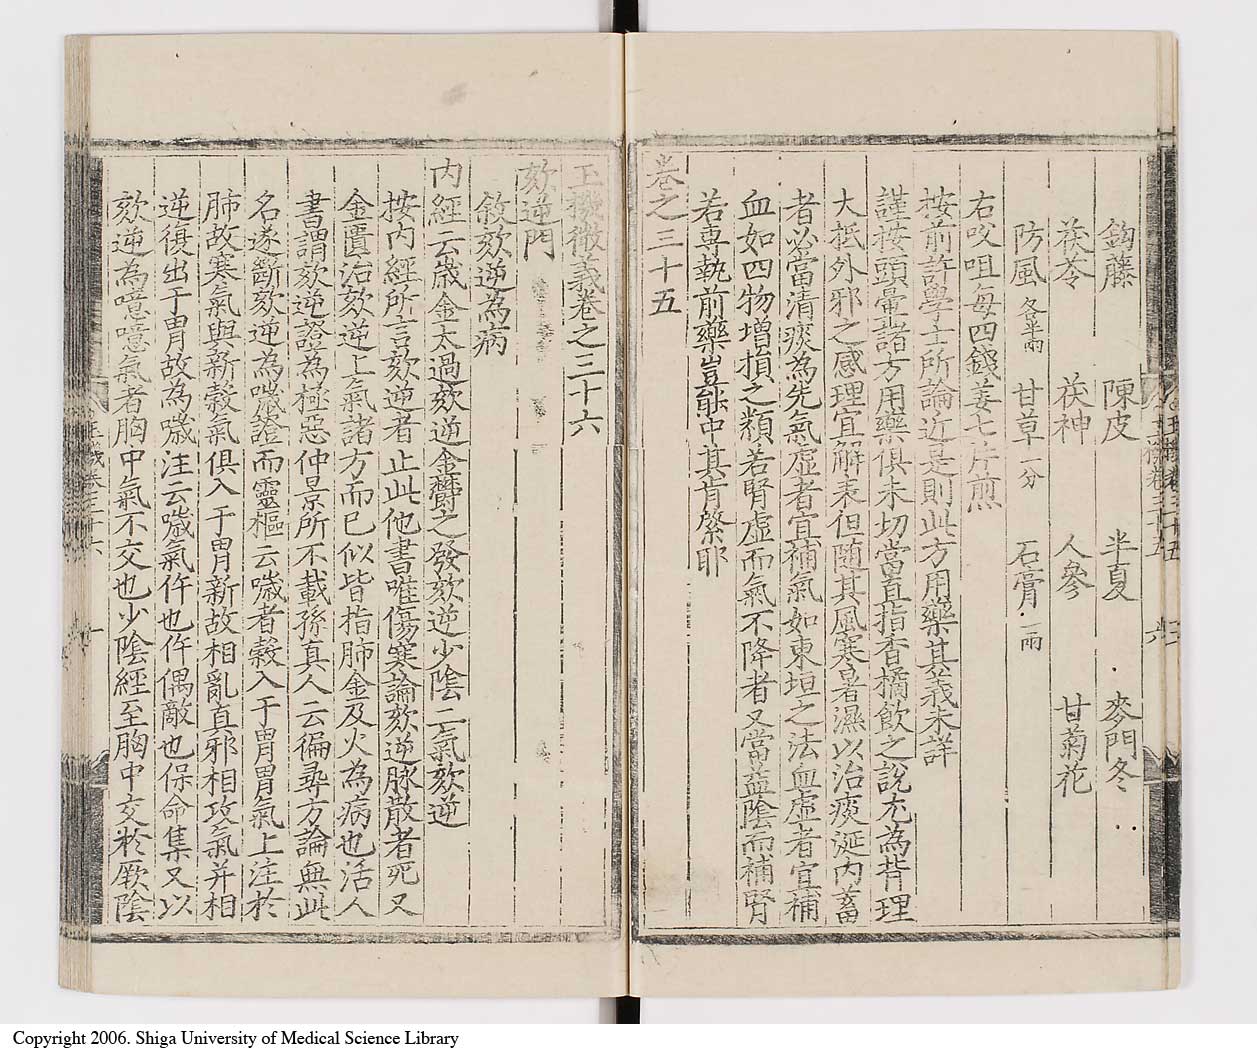 鈎藤 陳皮 半夏 麥門冬
茯苓 茯神 人參 甘菊花
防風各半兩 甘草一分 石膏一兩
右㕮咀每四錢姜七片煎
按前許學士所論近是則此方用藥其義未詳
謹按頭暈諸方用藥俱未切當直指香橘飲之說尤為背理
大抵外邪之感理宜解表但隨其風寒暑濕以治痰涎內蓄
者必當清痰為先氣虛者宜補氣如東垣之法血虛者宜補
血如四物增損之類若腎虛而氣不降者又當益陰而補腎
若專執前藥豈能中其肯綮耶
卷之三十五
玉機微義卷之三十六
欬逆門
敘欬逆為病
內經云歲金太過欬逆金鬱之發欬逆少陰二氣欬逆
按內經所言欬逆者止此他書唯傷寒論欬逆脉散者死又
金匱治欬逆上氣諸方而已似皆指肺金及火為病也活人
書謂欬逆證為極惡仲景所不載孫真人云徧尋方論無此
名遂斷欬逆為噦證而靈樞云噦者穀入于胃胃氣上注於
肺故寒氣與新穀氣俱入于胃新故相亂真邪相攻氣并相
逆復出于胃故為噦注云噦氣仵也仵偶敵也保命集又以
欬逆為噫噫氣者胸中氣不交也少陰經至胸中交於厥陰
Copyright 2006. Shiga University of Medical Science Library